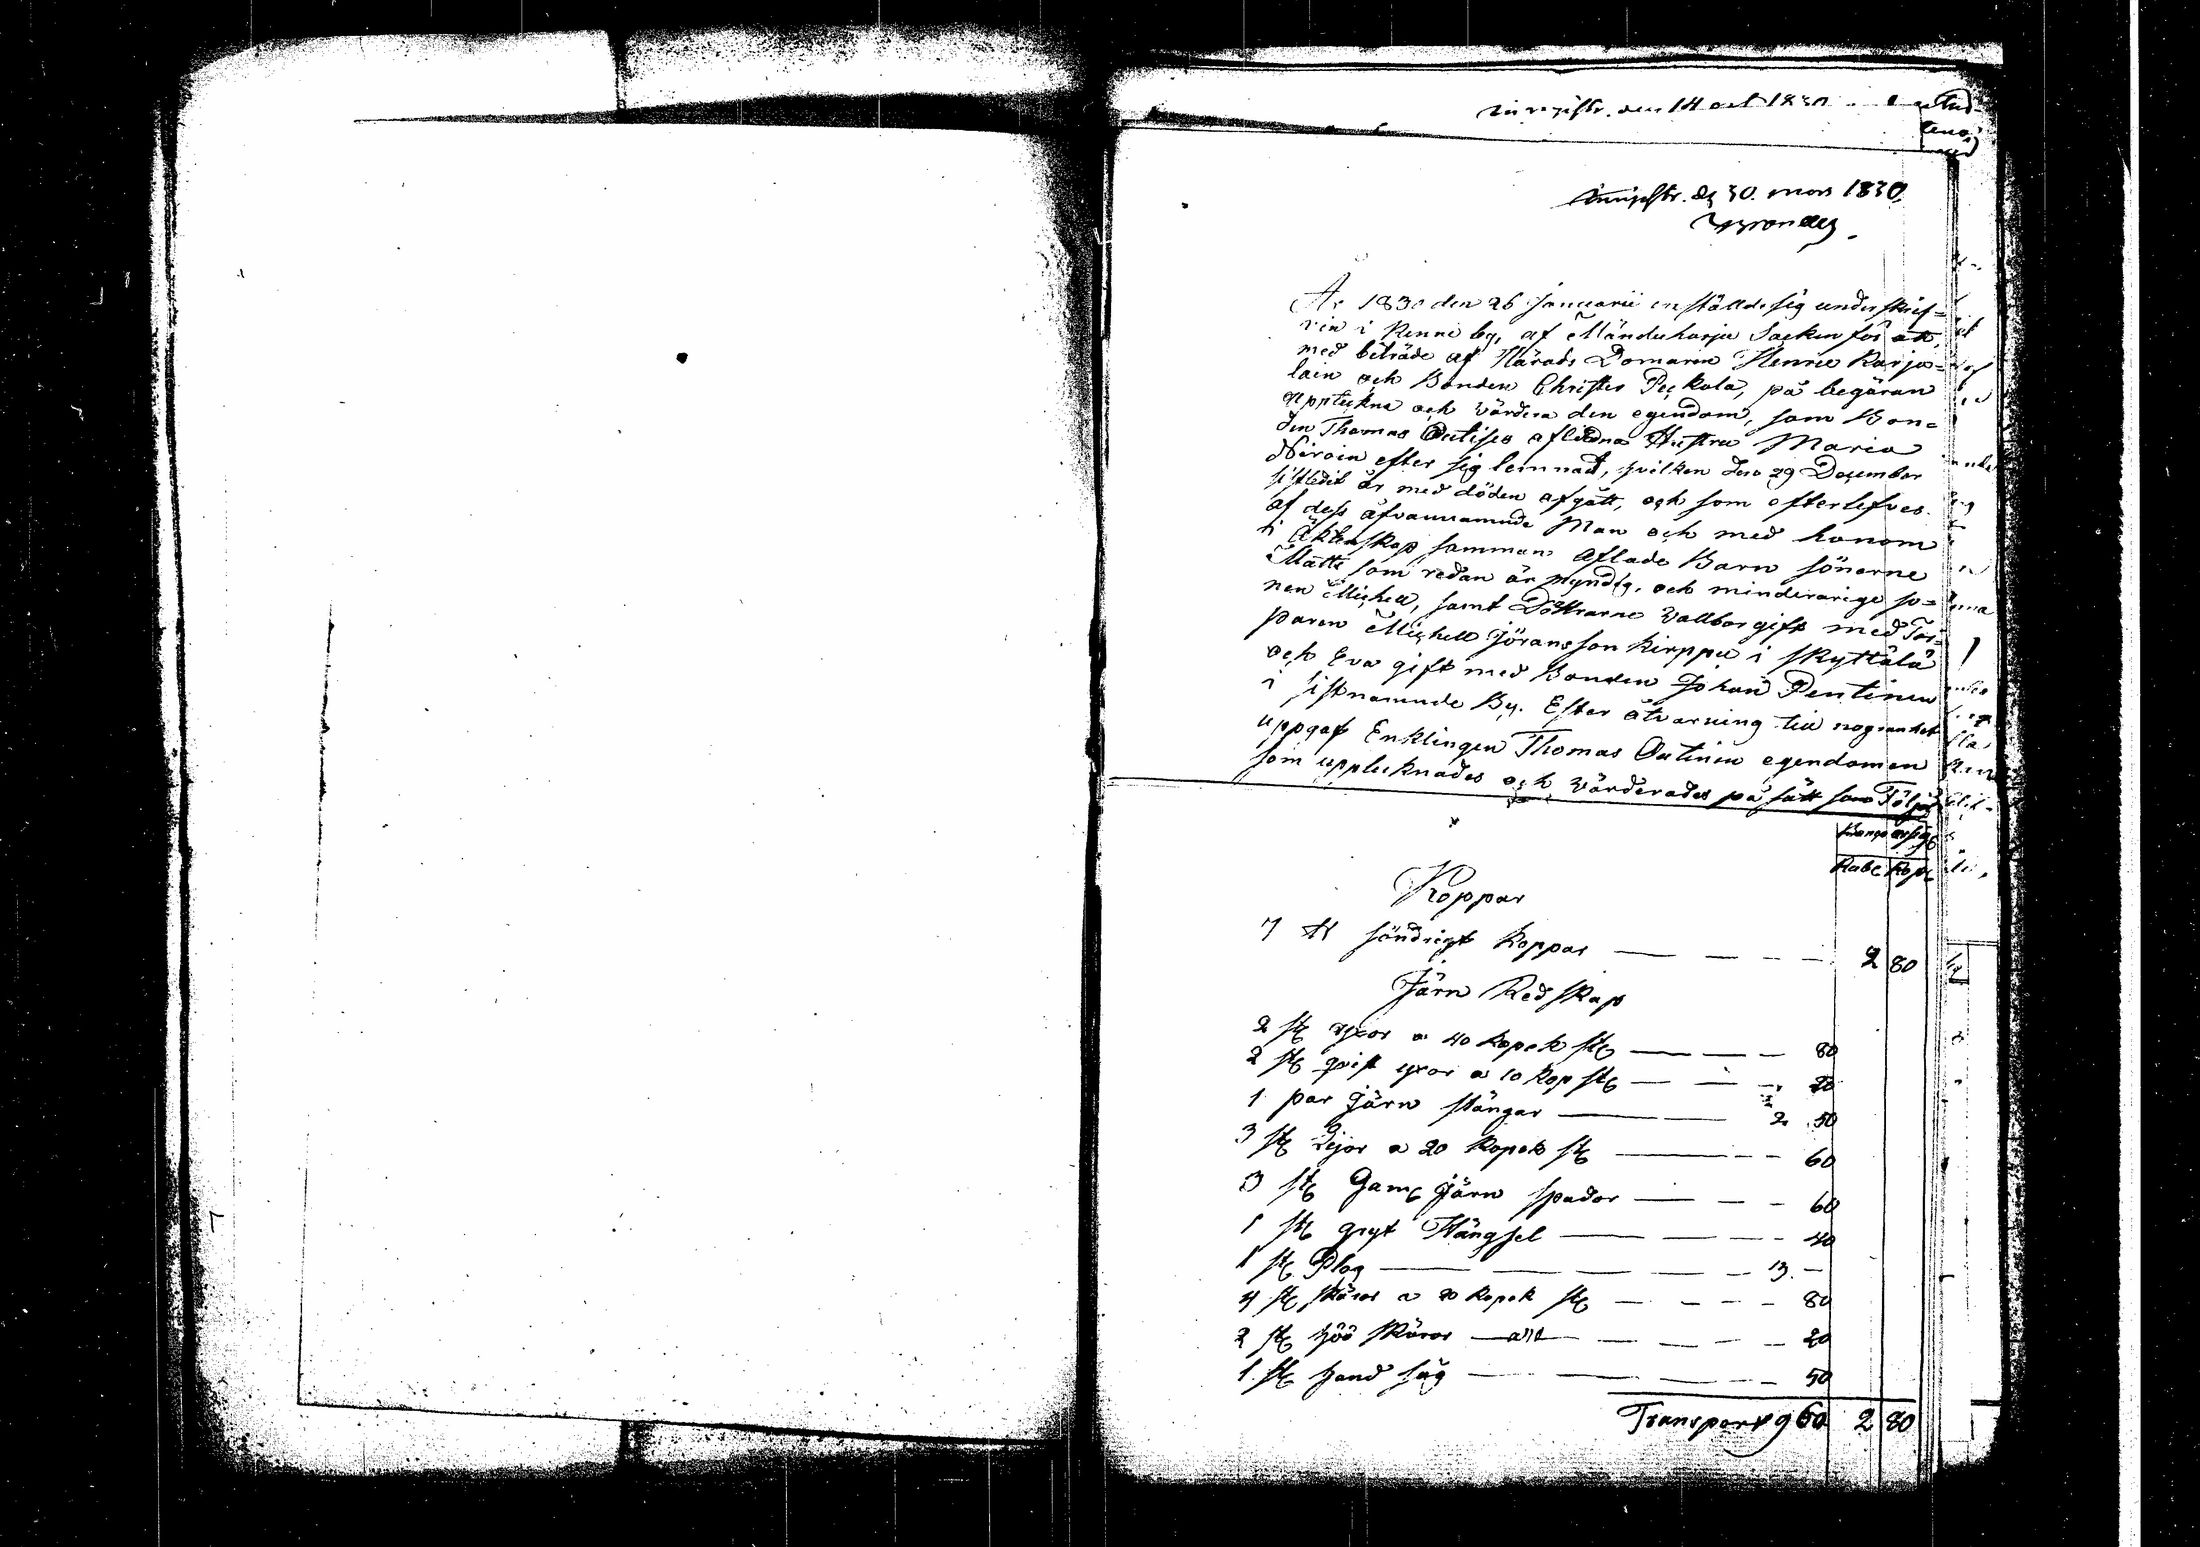 den 14 oct 1830
den 30. mars 1830.
År 1830 den 26 Januarii instälde sig underskrif=
vin i Kenni by, af Mändeharju Socken för att,
med biträde af Härads Domaren Henric Karja=
lain och Bonden Christer Peckola, på begäran
uppteckna och värdera den egendom, som Bon=
den Thomas Outises aflidna Hustru Maria
Niroin efter sig lemnat, hvilken den 29 December
sistledit år med döden afgått, och som efterlefves
af dess åfvannamnde Man och med honom
i Äktenskap samman aflade Barn sönerne
Matts som redan är myndig, och minderarige so=
nen Michell, samt Döttrarne Vallbor gift med Tor=
paren Michell Jöransson Kirppu i Skyttälä
och Eva gift med Bonden Johan Pentinen
i sistnamnde By. Efter åtvarning till nogranhet
uppgaf Enklingen Thomas Outinen egendomen
som upptecknades och värderades på sätt som Följer
Banco assign
Rubl Kop
Koppar
7 ℔ söndrigt koppar — — — 2 80
Järn Redskap
2 st yxor a 40 kopek st — — — 80
2 st qvist yxor a 10 kop st — — — 20
1 par Järn stängar — — 2 50
3 st Lijor a 20 kopek st — — — 60
3 st Gaml Järn spador — — — 60
1 st gryt Hängsel — — — 40
1 st Plog — — — — 3 —
4 st skäror a 20 kopek st — — — 80
2 st höö skäror — — — 20
1 st hand såg — — — 50
Transport 9 60 2 80